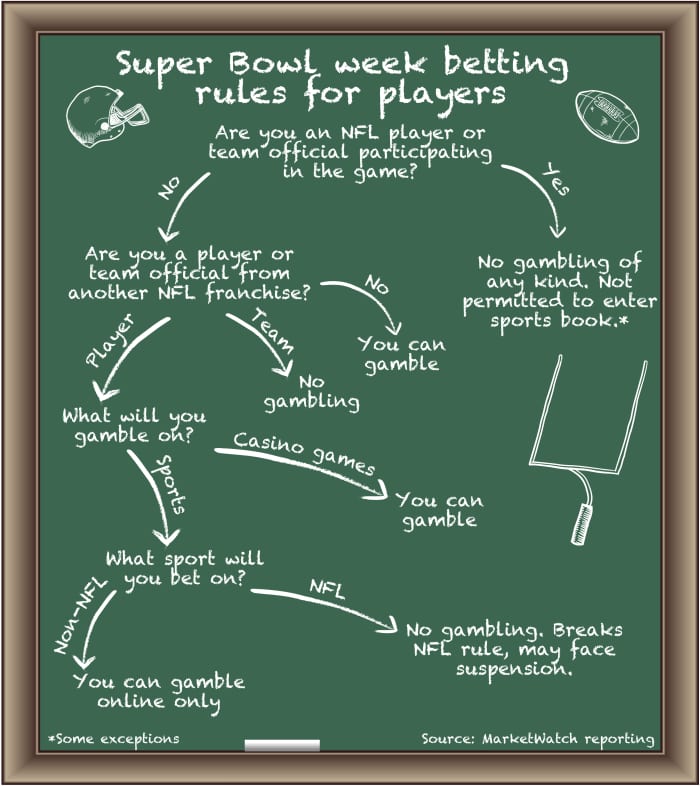 Super Bowl week betting
rules for players
Are you an NFL player or
team official participating
in the game?
No
Yes
Are you a player or
team official from
another NFL franchise?
No gambling of
any kind. Not
permitted to enter
sports book.*
No
You can
gamble
Player
Team
No
gambling
What will you
gamble on?
Casino games
You can
gamble
Sports
What sport will
you bet on?
Non-NFL
NFL
No gambling. Breaks
NFL rule, may face
suspension.
You can gamble
online only
*Some exceptions
Source: MarketWatch reporting